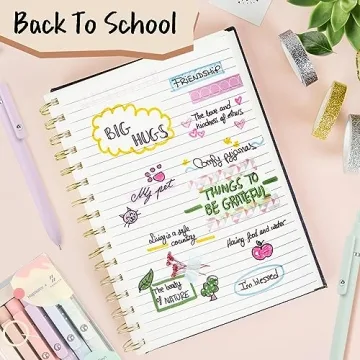 Back To School
FRIENDSHIP
BIG
HUGS
The love and
kindness of others
Comfy pyjamas
My pet
THINGS TO
BE GRATEFUL
Living in a safe
country
Having food and water
The beauty
of NATURE
I'm blessed